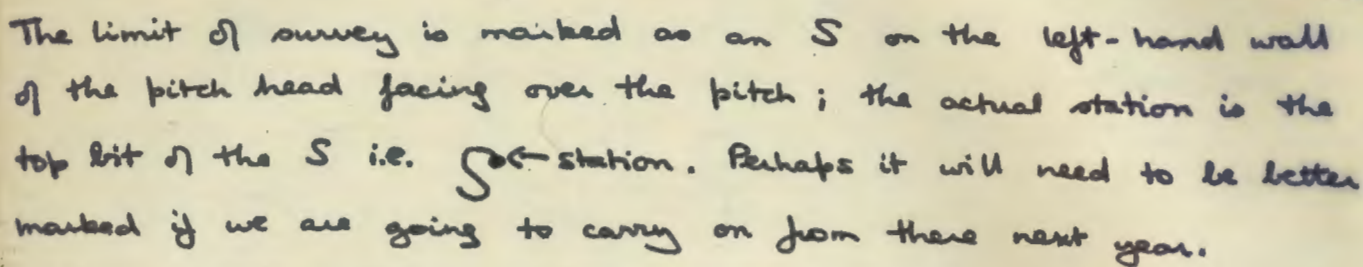 The limit of survey is marked as an S on the left-hand wall
of the pitch head facing over the pitch ; the actual station is the
top bit of the S i.e. S ← station. Perhaps it will need to be better
marked if we are going to carry on from there next year.